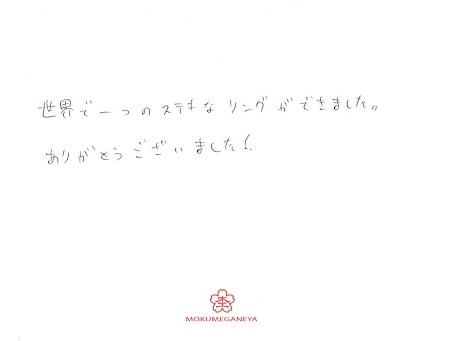 世界で一つのステキなリングができました。
ありがとうございました！
MOKUMEGANEYA